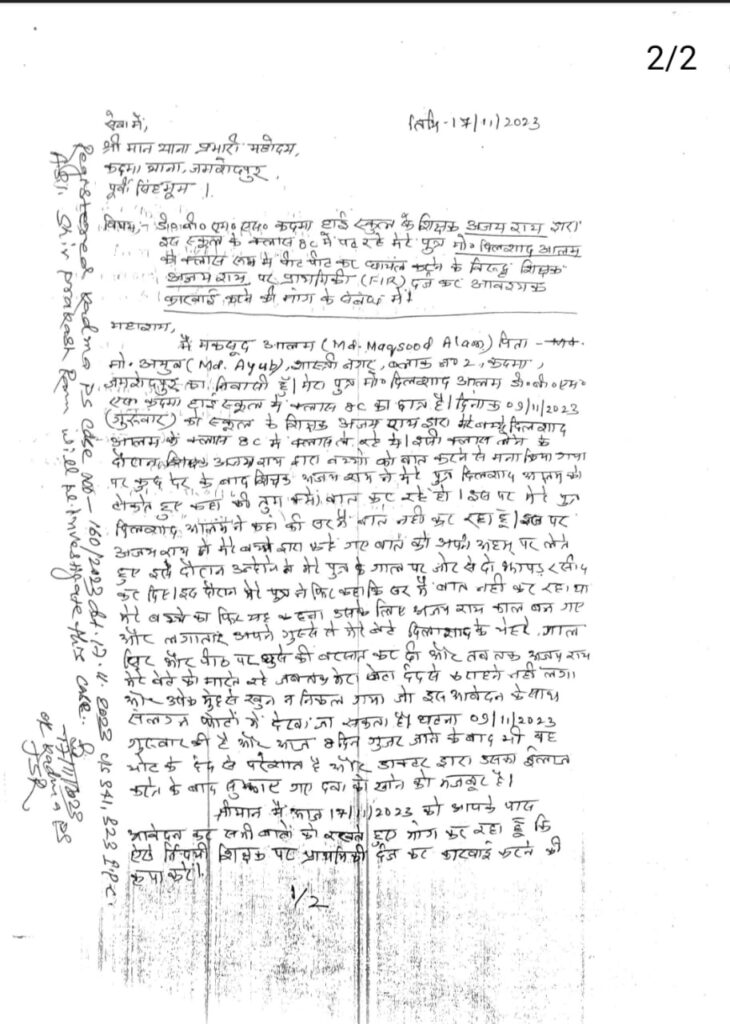 2/2
तिथि-17/11/2023
सेवा में,
श्री मान थाना प्रभारी महोदय,
कदमा थाना, जमशेदपुर,
पूर्वी सिंहभूम ।
विषय:- डी०बी०एम०एस० कदमा हाई स्कूल के शिक्षक अजय राय द्वारा
इस स्कूल के क्लास 8C में पढ़ रहे मेरे पुत्र मो० दिलशाद आलम
को क्लास रूम में पीट पीट कर घायल करने के विरुद्ध शिक्षक
अजय राय पर प्राथमिकी (FIR) दर्ज कर आवश्यक
कारवाई करने की मांग के संबंध में।
महाशय,
मैं मकसूद आलम (Md. Maqsood Alam) पिता -
मो. अयुब (Md. Ayub), शास्त्री नगर, ब्लाक न० 2, कदमा,
जमशेदपुर का निवासी हूँ। मेरा पुत्र मो० दिलशाद आलम डी०बी०एम०
एस० कदमा हाई स्कूल में क्लास 8C का छात्र है। दिनांक 09/11/2023
(गुरुवार) को स्कूल के शिक्षक अजय राय द्वारा मेरे बच्चे दिलशाद
आलम के क्लास 8C में क्लास ले रहे थे। इसी क्लास लेने के
दौरान शिक्षक अजय राय द्वारा बच्चों को बात करने से मना किया गया
पर कुछ देर के बाद शिक्षक अजय राय ने मेरे पुत्र दिलशाद आलम को
टोकते हुए कहा की तुम क्यों बात कर रहे हो। इस पर मेरे पुत्र
दिलशाद आलम ने कहा की सर मैं बात नहीं कर रहा हूँ। इस पर
अजय राय ने मेरे बच्चे द्वारा कहे गए बात को अपने अहम् पर लेते
हुए इसी दौरान उन्होंने ने मेरे पुत्र के गाल पर जोर से दो झापड़ रसीद
कर दिए। इस दौरान मेरे पुत्र ने फिर कहा कि सर मैं बात नहीं कर रहा था
मेरे बच्चे का फिर यह कहना उसके लिए अजय राय काल बन गए
और लगातार अपने गुस्से से मेरे बेटे दिलशाद के चेहरे, गाल
सिर और पीठ पर घुसे की बरसात कर दी और तब तक अजय राय
मेरे बेटे को मारते रहे जबतक मेरा बेटा दर्द से कराहने नहीं लगा
और उसके मुँह से खुन न निकल गया जो इस आवेदन के साथ
संलग्न फोटो में देखा जा सकता है। घटना 09/11/2023
गुरुवार की है और आज 8 दिन गुजर जाने के बाद भी वह
चोट के दर्द से परेशान है और डाक्टर द्वारा उसका इलाज
करने के बाद सुझाए गए दवा को खाने को मजबूर है।
श्रीमान मैं आज 17/11/2023 को आपके पास
आवेदन कर सभी बातों को रखते हुए मांग कर रहा हूँ कि
ऐसे शिक्षक पर प्राथमिकी दर्ज कर कारवाई करने की
कृपा करें।
1/2
Registered Kadma PS Case No-160/2023 dt. 17.11.2023 u/s 341, 323 I.P.C.
ASI. Shiv prakash Ram will investigate this case.
17/11/2023
Kadma PS
JSR